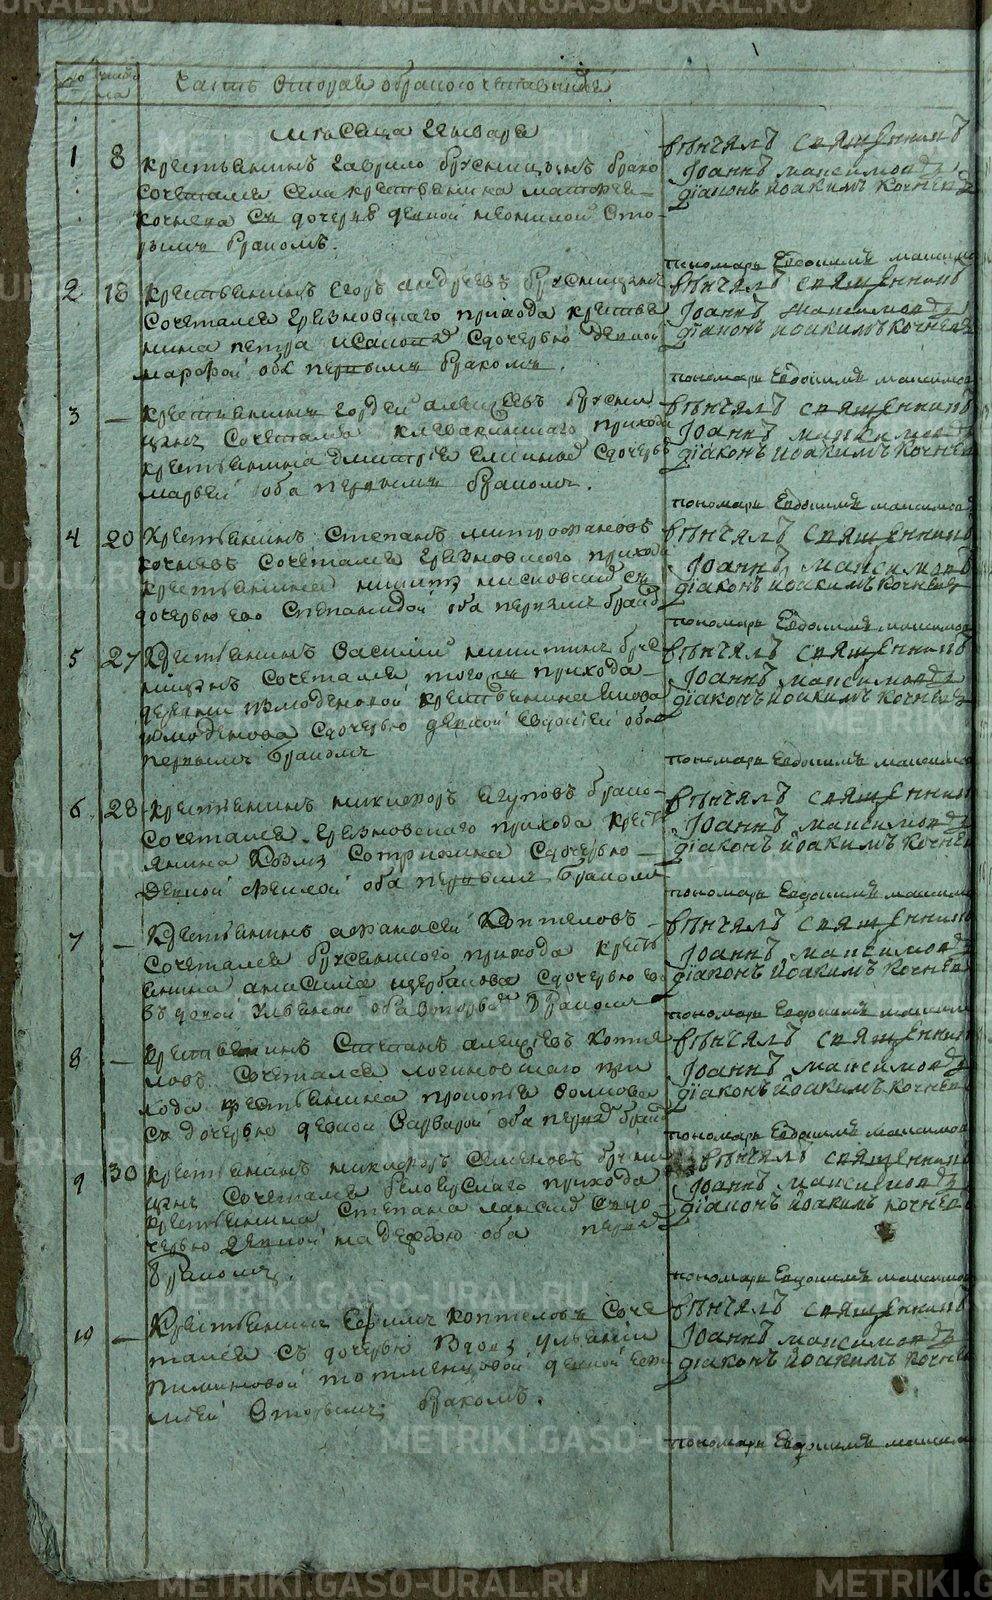 METRIKI.GASO-URAL.RU
METRIKI.GASO-URAL.RU
Часть вторая о бракосочетавшихся
месяца Генваря
1 8 крестьянинъ Гаврило Брусницынъ брако
сочетался села крестьянина матвея
кочнева съ дочерью девкой неонилой вто
рымъ бракомъ.
вѣнчалъ священникъ
Iоаннъ максимовъ
дiаконъ Иоакимъ Кочневъ
пономарь Евдокимъ максимов
2 18 крестьянинъ Егоръ андреевъ Брусницынъ
сочетался Грязновскаго прихода крестья
нина петра Исакова сдочерью девкой
марфой оба первымъ бракомъ.
вѣнчалъ священникъ
Iоаннъ максимовъ
дiаконъ Иоакимъ Кочневъ
пономарь Евдокимъ максимов
3 — крестьянинъ Гордей алексеевъ Брусни
цынъ сочетался клевакинскаго прихода
крестьянина дмитрiя сдочерью
марьей оба первымъ бракомъ.
вѣнчалъ священникъ
Iоаннъ максимовъ
дiаконъ Иоакимъ Кочнев
пономарь Евдокимъ максимов
4 20 Крестьянинъ Степанъ митрофановъ
кочневъ сочетался Грязновскаго прихода
крестьянина никиты съ
дочерью его Степанидой оба первымъ брако
вѣнчалъ священникъ
Iоаннъ, максимовъ
дiаконъ Иоакимъ Кочневъ
пономарь Евдокимъ максимов
5 27 Крестьянинъ Василий никитинъ Брус
ницынъ сочетался того же прихода
деревни крестьянина
сдочерью девкой оба
первымъ бракомъ
вѣнчалъ священникъ
Iоаннъ, максимовъ
дiаконъ Иоакимъ Кочневъ
пономарь Евдокимъ максимов
6. 28 крестьянинъ никифоръ Егуповъ брако
сочетался Грязновскаго прихода крест
янина Козмы сдочерью
девкой феклой оба первымъ бракомъ
вѣнчалъ священникъ
Iоаннъ, максимовъ
дiаконъ Иоакимъ Кочнев
пономарь Евдокимъ максимов
7 — Крестьянинъ афанасей Коптеловъ
сочетался Брусянского прихода кресть
янина анисима щербакова сдочерью ево
вдовой Ульяной оба вторымъ бракомъ
вѣнчалъ священникъ
Iоаннъ, максимовъ
дiаконъ Иоакимъ Кочнев
пономарь Евдокимъ максимов
8 — крестьянинъ Степанъ алексеевъ Копте
ловъ сочетался логиновскаго при
хода крестьянина прокопья волкова
съ дочерью девкой варварой оба первы брак
вѣнчалъ священникъ
Iоаннъ максимовъ
дiаконъ Иоакимъ Кочнев
пономарь Евдокимъ максимов
9 30 крестьянинъ никифоръ Семеновъ Брусни
цынъ сочетался белоярскаго прихода
крестьянина Степана сдо
черью девкой надеждою оба первы
бракомъ.
вѣнчалъ священникъ
Iоаннъ, максимовъ
дiаконъ Иоакимъ кочнев
пономарь Евдокимъ максимов
10 — Крестьянинъ Ефимъ Коптеловъ соче
тался съ дочерью вдовы ульянiи
девкой
вторымъ бракомъ.
вѣнчалъ священникъ
Iоаннъ максимовъ
дiаконъ Иоакимъ Кочнев
пономарь Евдокимъ максимов
METRIKI.GASO-URAL.RU
METRIKI.G